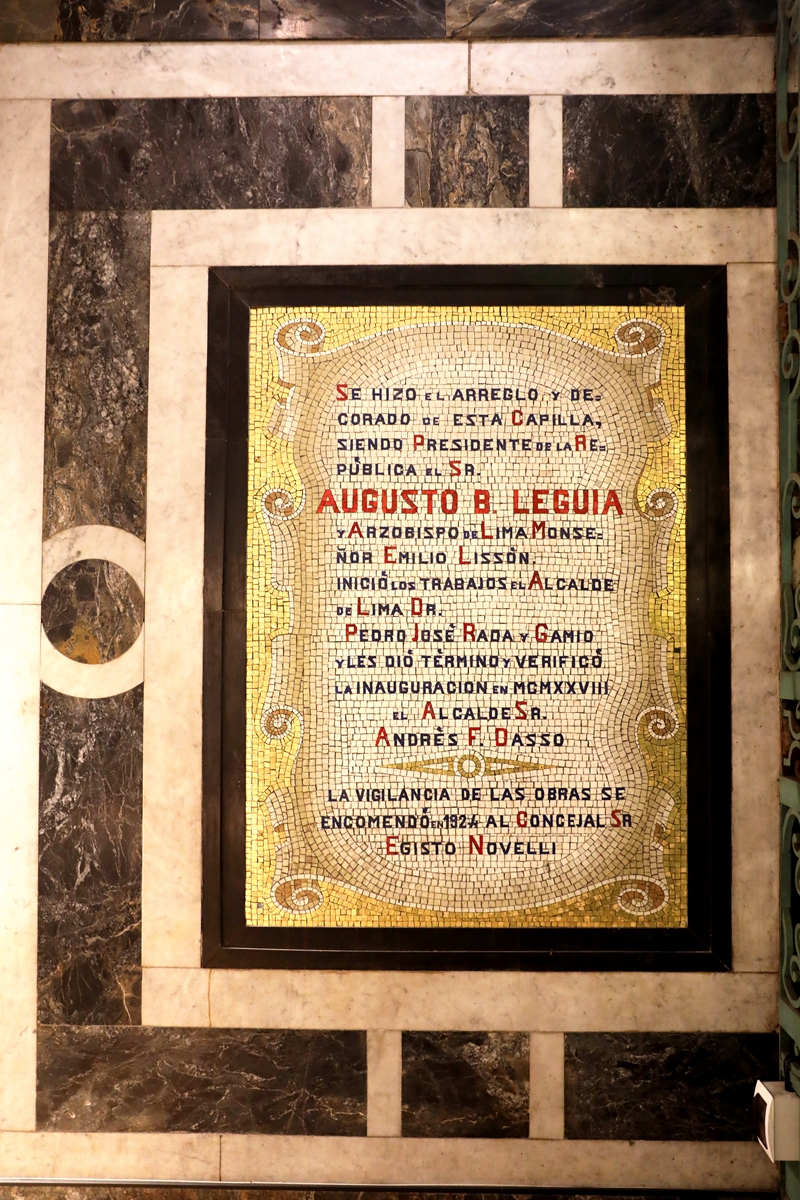 SE HIZO EL ARREGLO Y DE=
CORADO DE ESTA CAPILLA,
SIENDO PRESIDENTE DE LA RE=
PÚBLICA EL SR.
AUGUSTO B. LEGUIA
Y ARZOBISPO DE LIMA MONSE=
ÑOR EMILIO LISSÓN.
INICIÓ LOS TRABAJOS EL ALCALDE
DE LIMA DR.
PEDRO JOSÈ RADA Y GAMIO
Y LES DIÓ TÈRMINO Y VERIFICÓ
LA INAUGURACION EN MCMXXVIII
EL ALCALDE SR.
ANDRÈS F. DASSO
LA VIGILANCIA DE LAS OBRAS SE
ENCOMENDÓ EN 1924 AL CONCEJAL SR
EGISTO NOVELLI